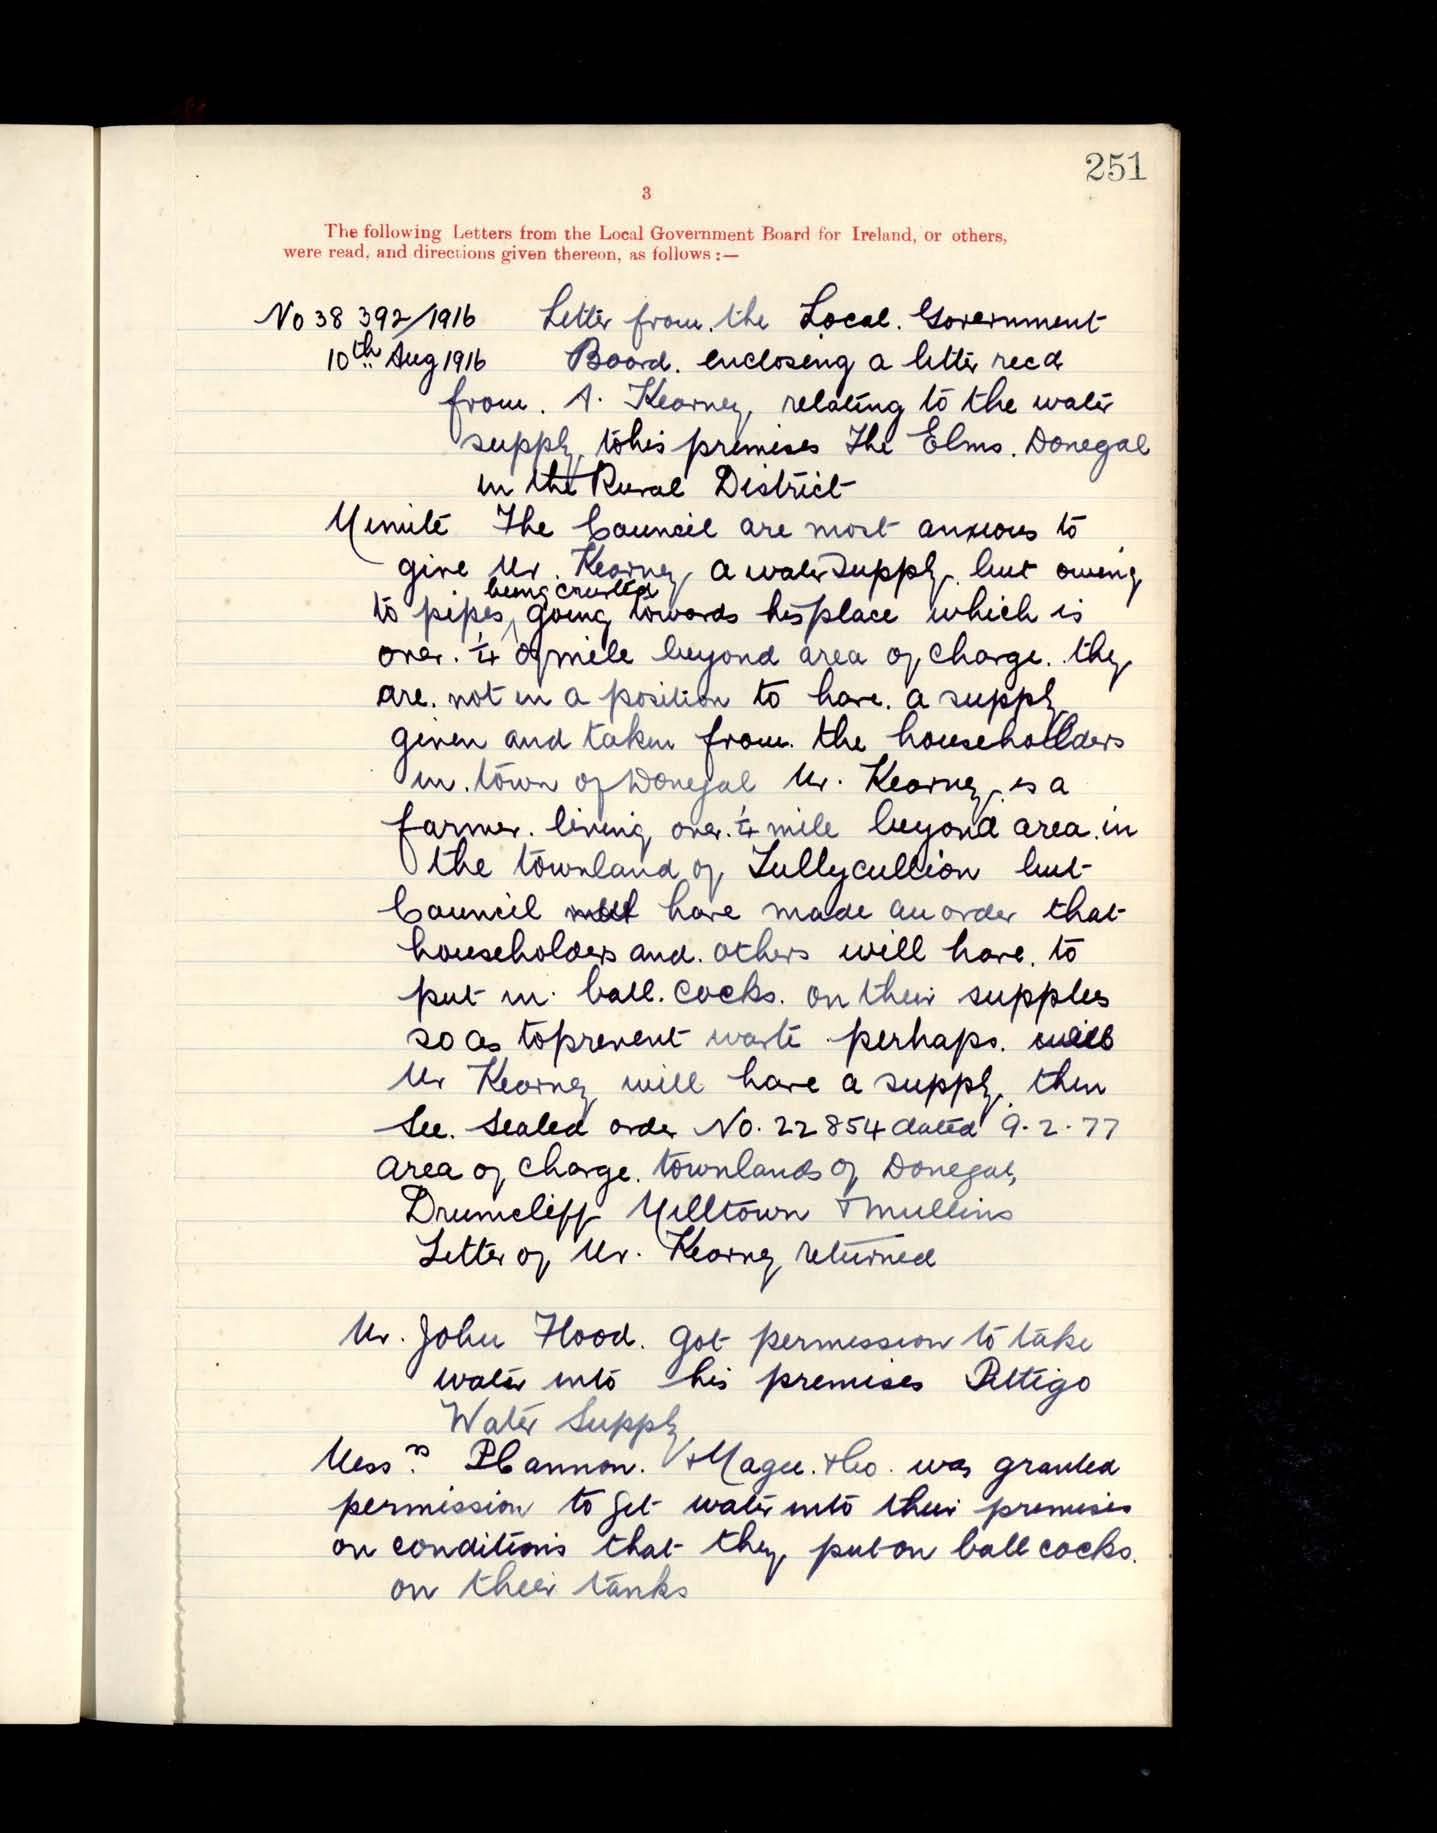 251
3
The following Letters from the Local Government Board for Ireland, or others,
were read, and directions given thereon, as follows :—
No 38 392/1916 Letter from. the Local. Government
10th Aug 1916 Board. enclosing a letter recd
from. A. Kearney, relating to the water
supply, to his premises The Elms. Donegal
in the Rural District
Minute The Council are most anxious to
give Mr. Kearney a water supply. but owing
being crusted
to pipes, going towards his place which is
over. 1/4 of mile beyond area of charge. they
are. not in a position to have. a supply
given and taken from. the householders
in. town of Donegal Mr. Kearney. is a
farmer. living over. 1/4 mile beyond area. in
the townland of Tullycullion but
Council have made an order that
householders and. others will have. to
put in. ball. cocks. on their supplies
so as to prevent waste perhaps.
Mr Kearney will have a supply. then
See. Sealed order No. 22854 dated 9.2.77
area of charge. townlands of Donegal,
Drumcliff Milltown & Mullins
Letter of Mr. Kearney returned
Mr. John Flood. got permission to take
water into his premises Pettigo
Water Supply
Messrs. P Cannon. & Magee. & Co. was granted
permission to get water into their premises
on conditions that they, put on ball cocks.
on their tanks